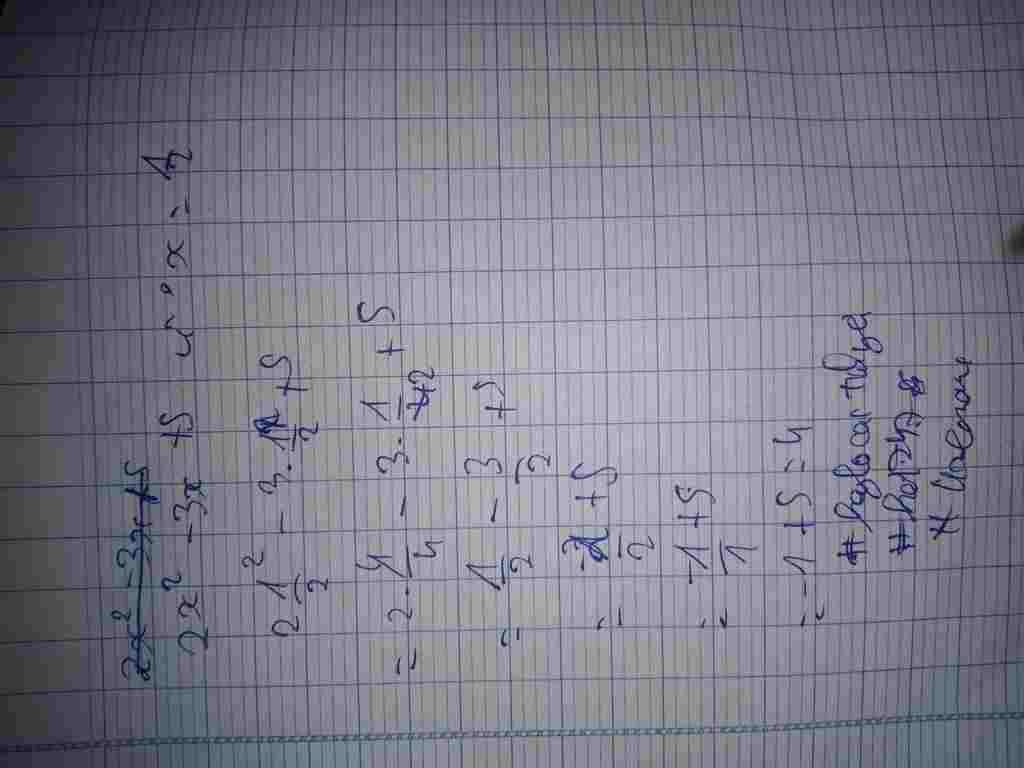 2x² - 3x + 5
2x² - 3x + 5 и x = 1/2
2 1²/2 - 3 · 1/2 + 5
= 2 · 1/4 - 3 · 1/2 + 5
= 1/2 - 3/2 + 5
= -2/2 + 5
= -1/1 + 5
= -1 + 5 = 4